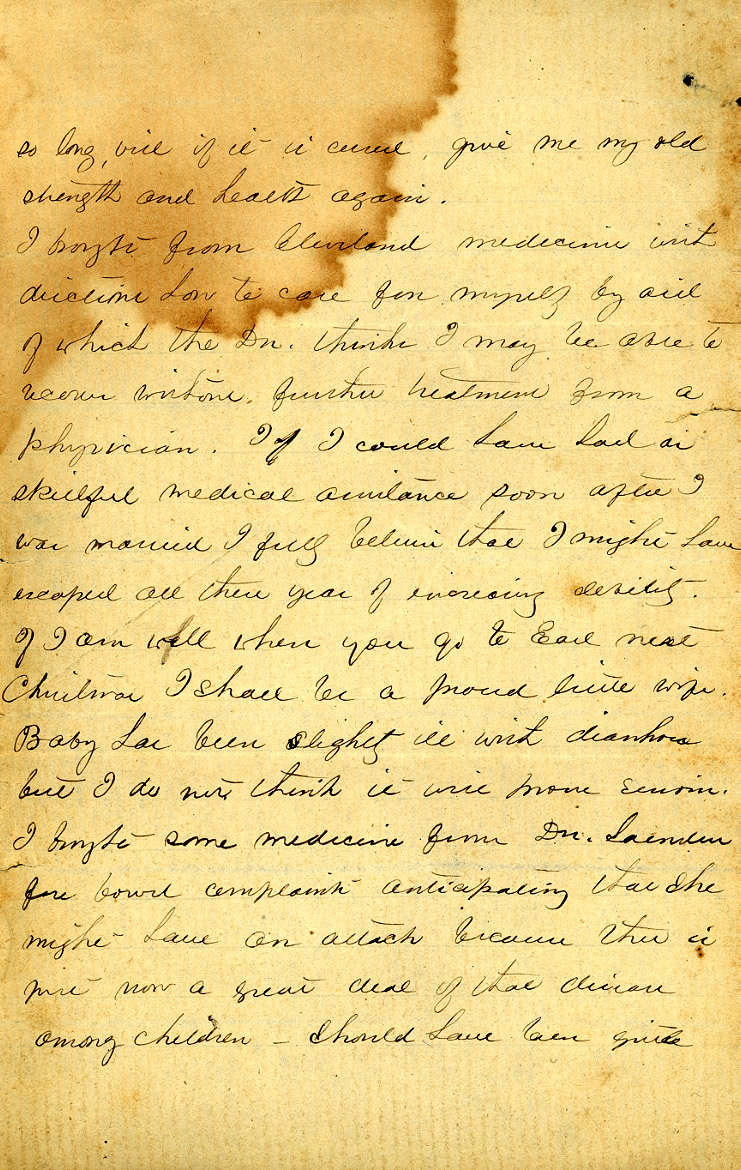 so long, will if it is cured, give me my old
strength and health again.
I bro't from Cleveland medicine with
directions how to care for myself by aid
of which the Dr. thinks I may be able to
recover without further treatment from a
physician. If I could have had as
skillful medical assistance soon after I
was married I fully believe that I might have
escaped all these years of increasing debility.
If I am well when you go to East next
Christmas I shall be a proud little wife.
Baby has been slightly ill with diarrhoea
but I do not think it will prove serious.
I bro't some medicine from Dr.
for bowel complaint anticipating that she
might have an attack because there is
just now a great deal of that disease
among children - should have been quite